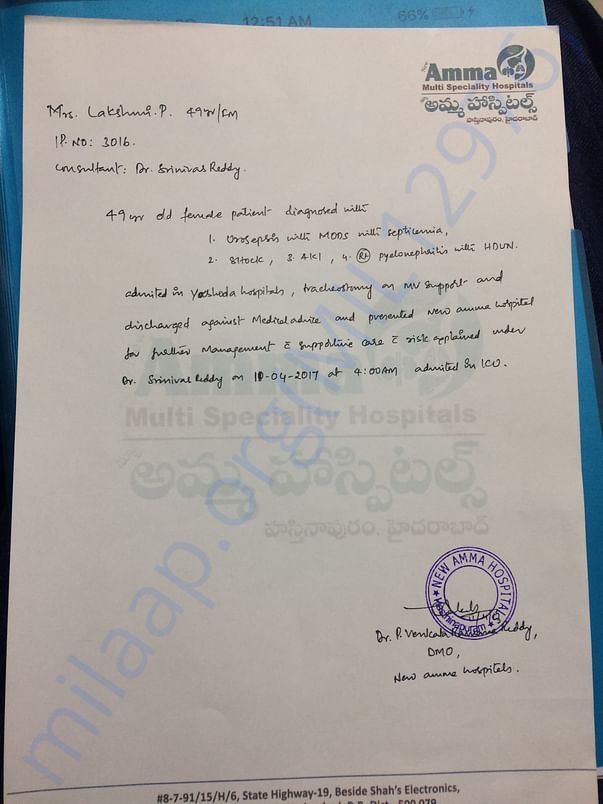 12:51 AM
66%
Amma
Multi Speciality Hospitals
అమ్మ హాస్పిటల్స్
హస్తినాపురం, హైదరాబాద్
Mrs. Lakshmi. P. 49yr/FM
IP. NO: 3016.
Consultant: Dr. Srinivas Reddy.
49 yr old female patient diagnosed with
1. Urosepsis with MODS with septicemia,
2. Shock, 3. AKI, 4. Rt pyelonephritis with HDUN.
admited in Yashoda hospitals, tracheostomy on MV support and
discharged against Medical advice and presented New amma hospital
for further Management c̄ supportive care c̄ risk applained under
Dr. Srinivas Reddy on 10-04-2017 at 4:00AM admited in ICU.
Amma
Multi Speciality Hospitals
అమ్మ హాస్పిటల్స్
హస్తినాపురం, హైదరాబాద్
milaap.org/MIL129
NEW AMMA HOSPITALS
Hasthinapuram
Dr. P. Venkata Reddy,
DMO,
New amma hospitals.
#8-7-91/15/H/6, State Highway-19, Beside Shah's Electronics,
Dist - 500 079